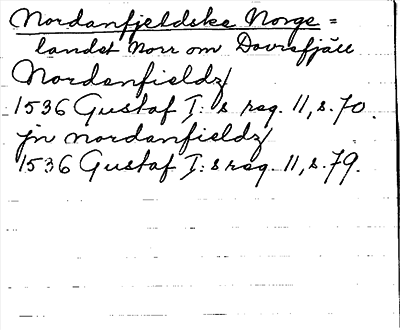 Nordanfjeldske Norge =
landet norr om Dovrefjäll
Nordenfieldz/
1536 Gustaf I:s reg. 11, s. 70.
jn nordanfieldz/
1536 Gustaf I:s reg. 11, s. 79.